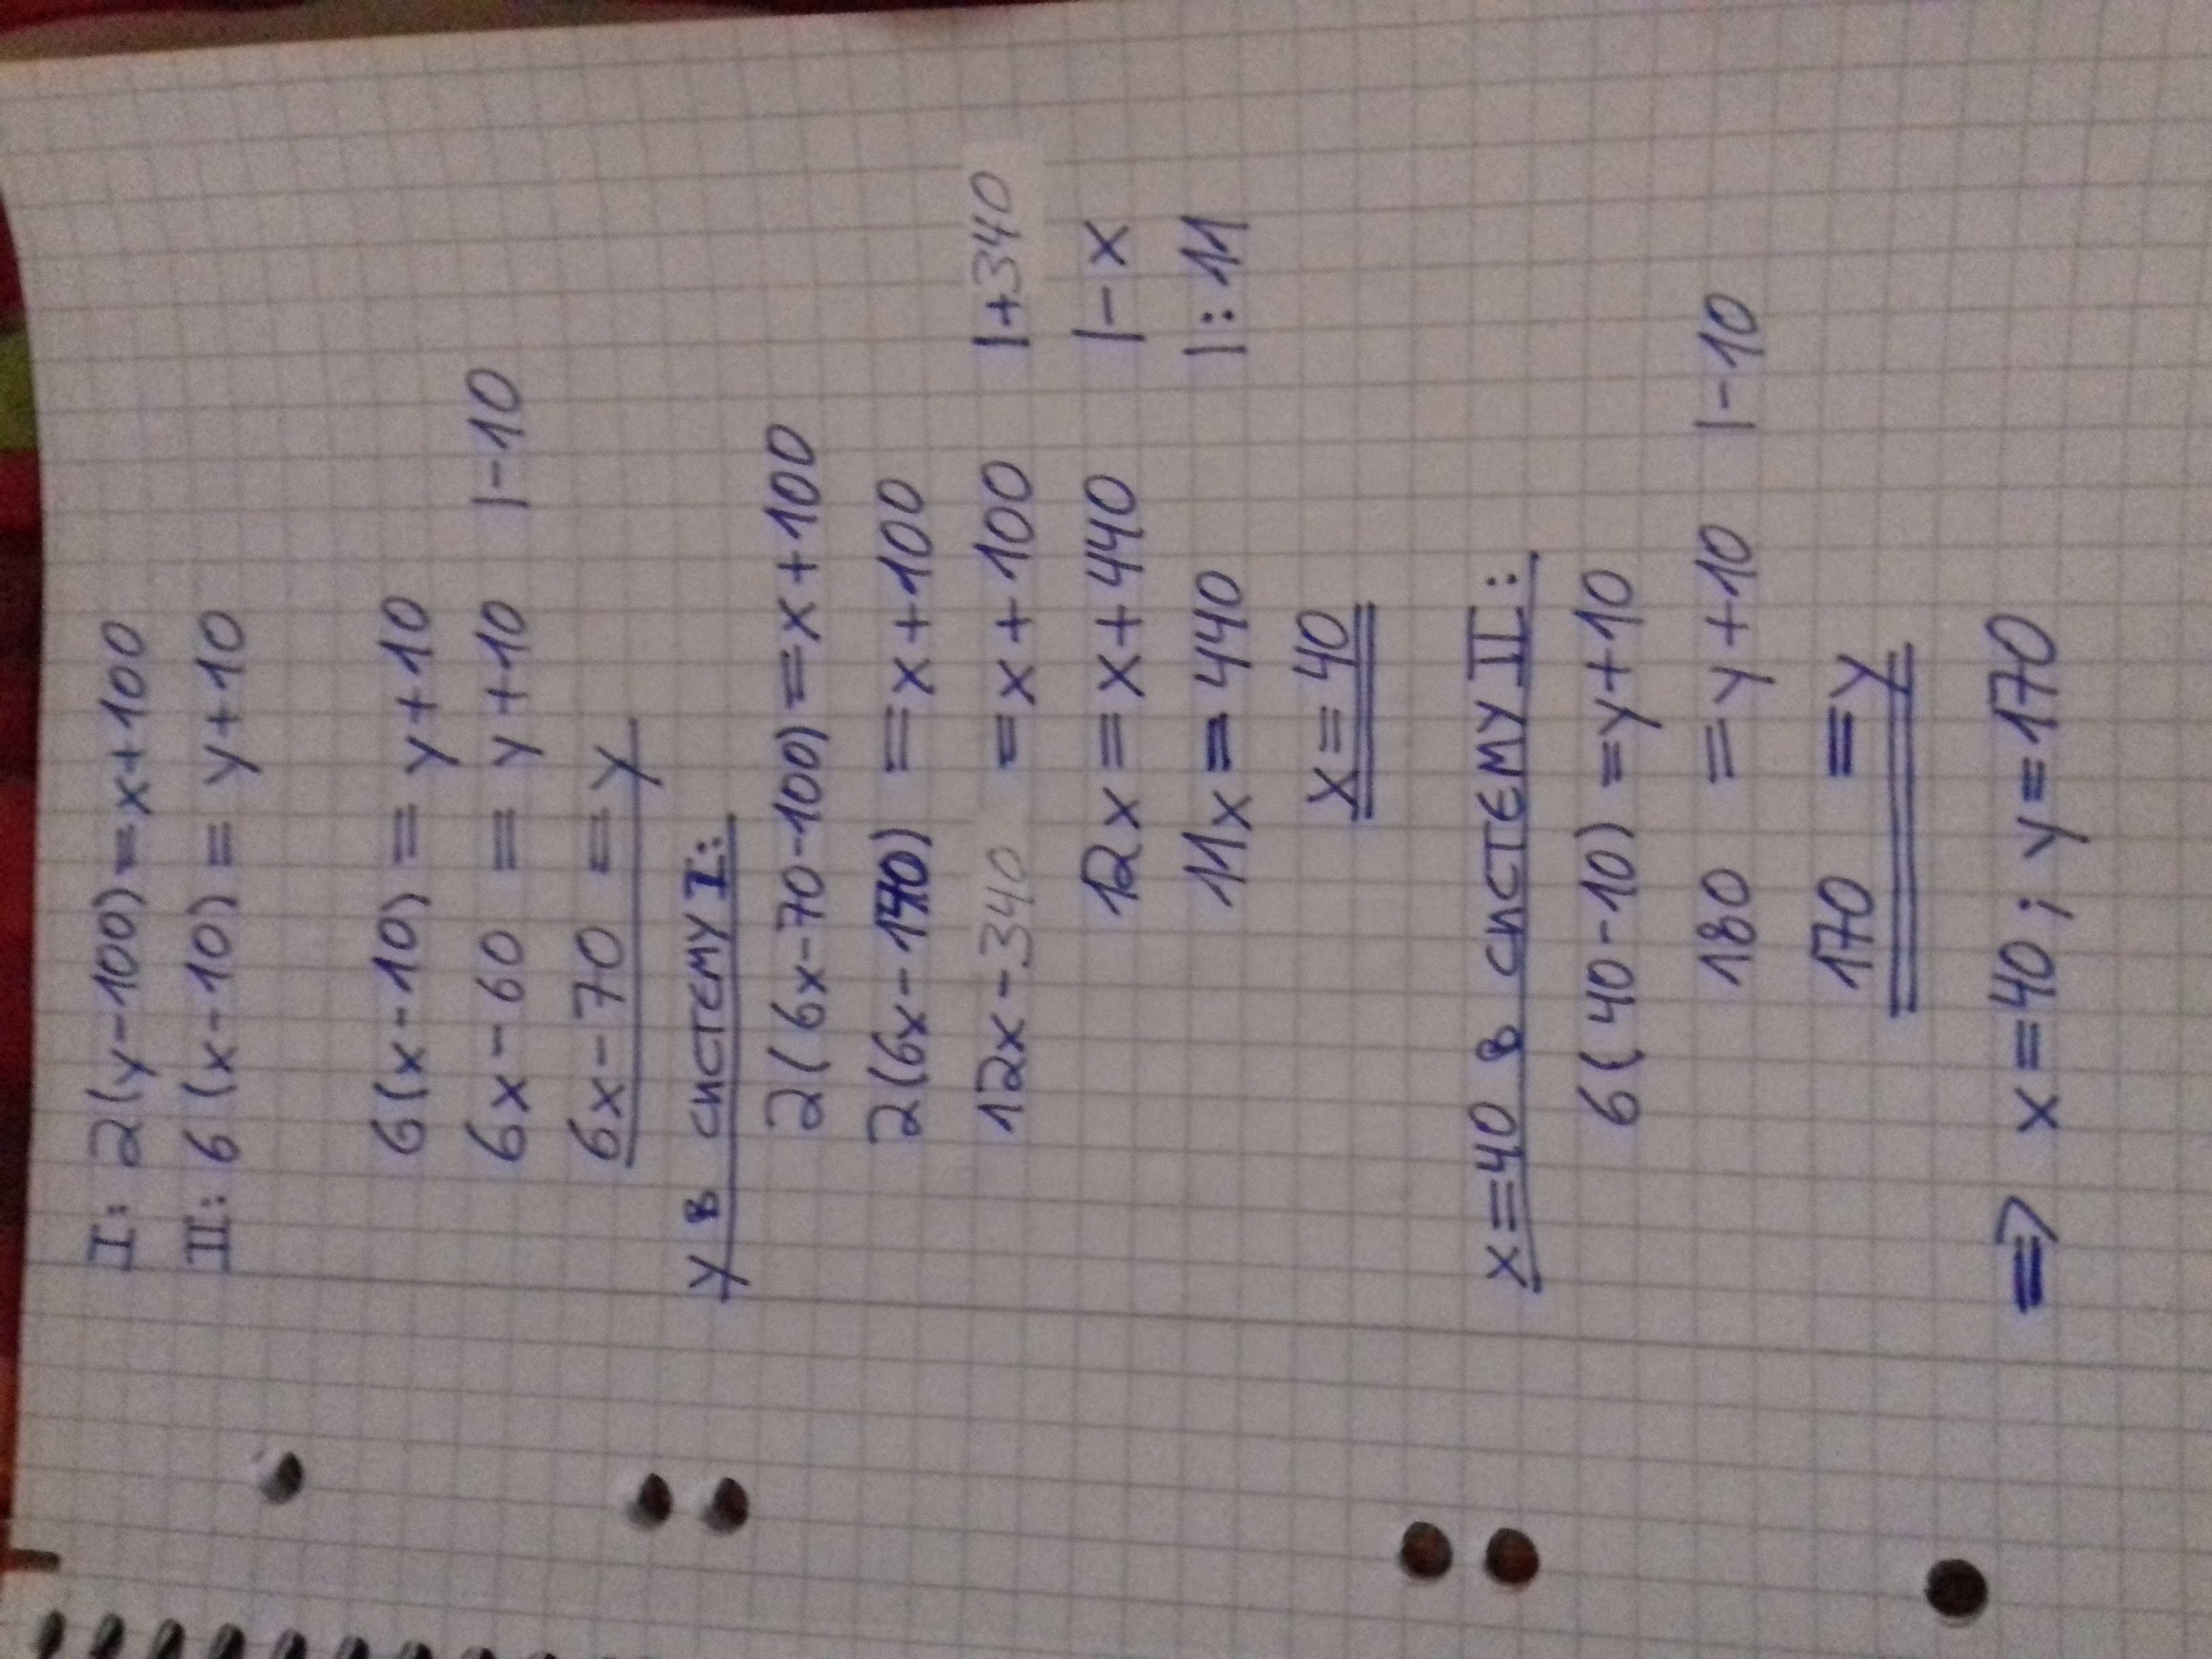 I: 2(y-100)=x+100
II: 6(x-10)=y+10
6(x-10)=y+10
6x-60=y+10 |-10
6x-70=y
y в систему I:
2(6x-70-100)=x+100
2(6x-170)=x+100
12x-340=x+100 |+340
12x=x+440 |-x
11x=440 |:11
x=40
x=40 в систему II:
6(40-10)=y+10
180=y+10 |-10
170=y
=> x=40; y=170